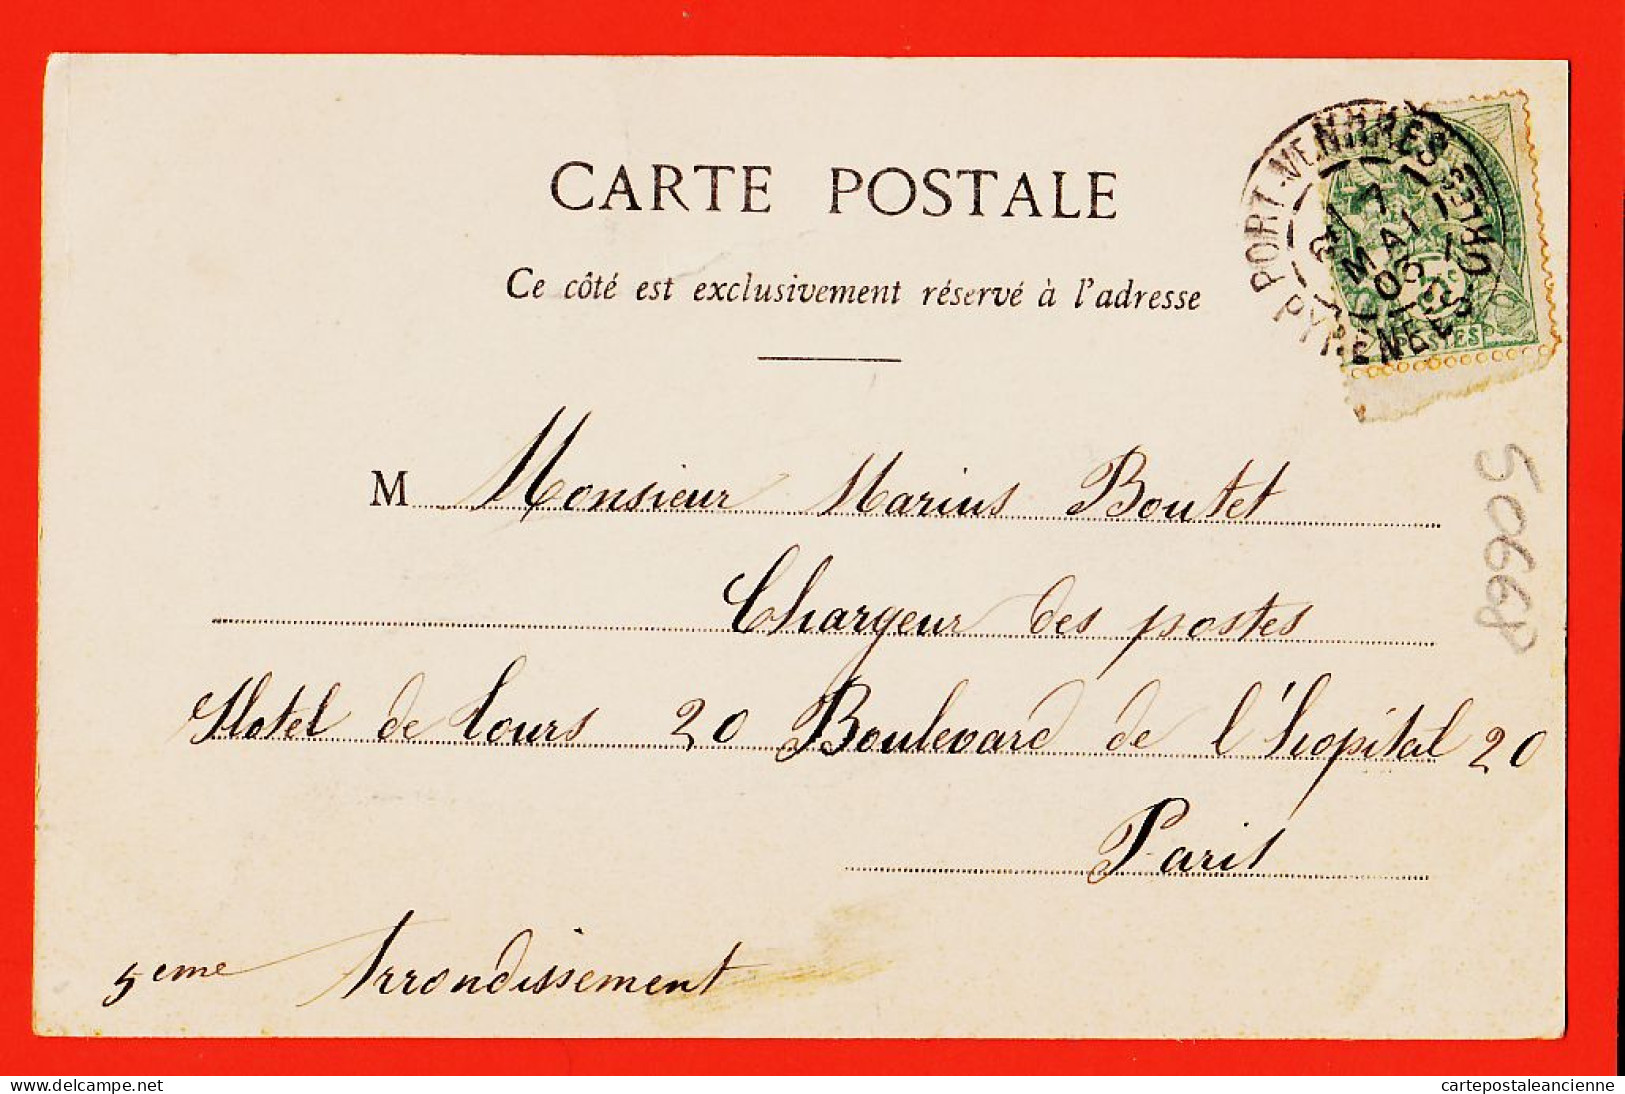 CARTE POSTALE
Ce côté est exclusivement réservé à l'adresse
PORT-VENDRES
PYRÉNÉES-ORLES
MAI
POSTES
M Monsieur Marius Boutet
Chargeur des postes
Hotel de Tours 20 Boulevard de l'hopital 20
Paris
5eme Arrondissement
50668
delcampe.net
cartepostaleancienne